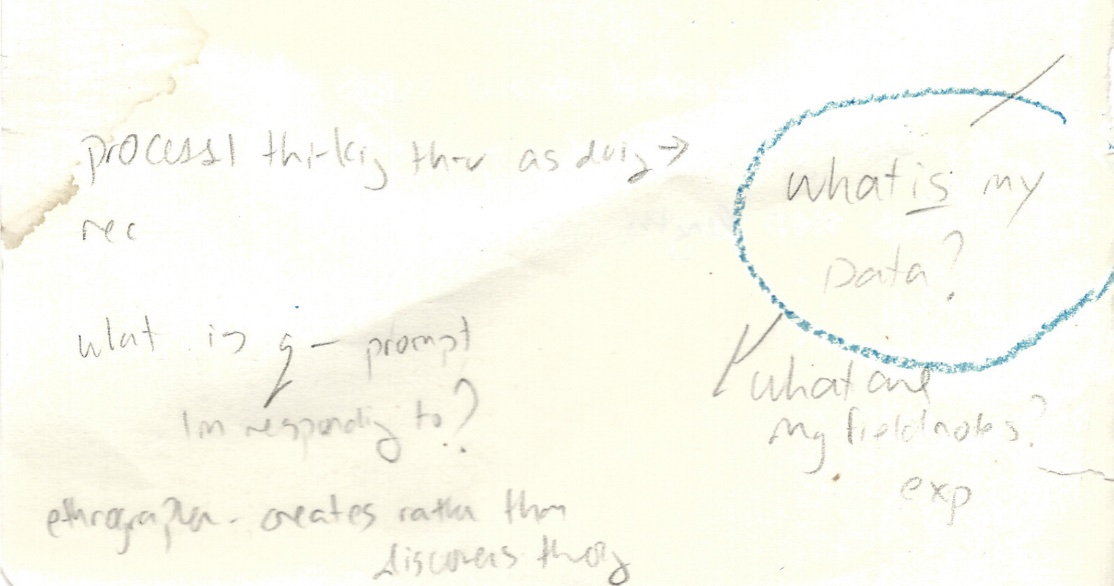 process thinking thru as doing →
rec
what is q - prompt
Im responding to?
ethnographer - creates rather than
discovers theory
what is my
Data?
what are
my fieldnotes?
exp